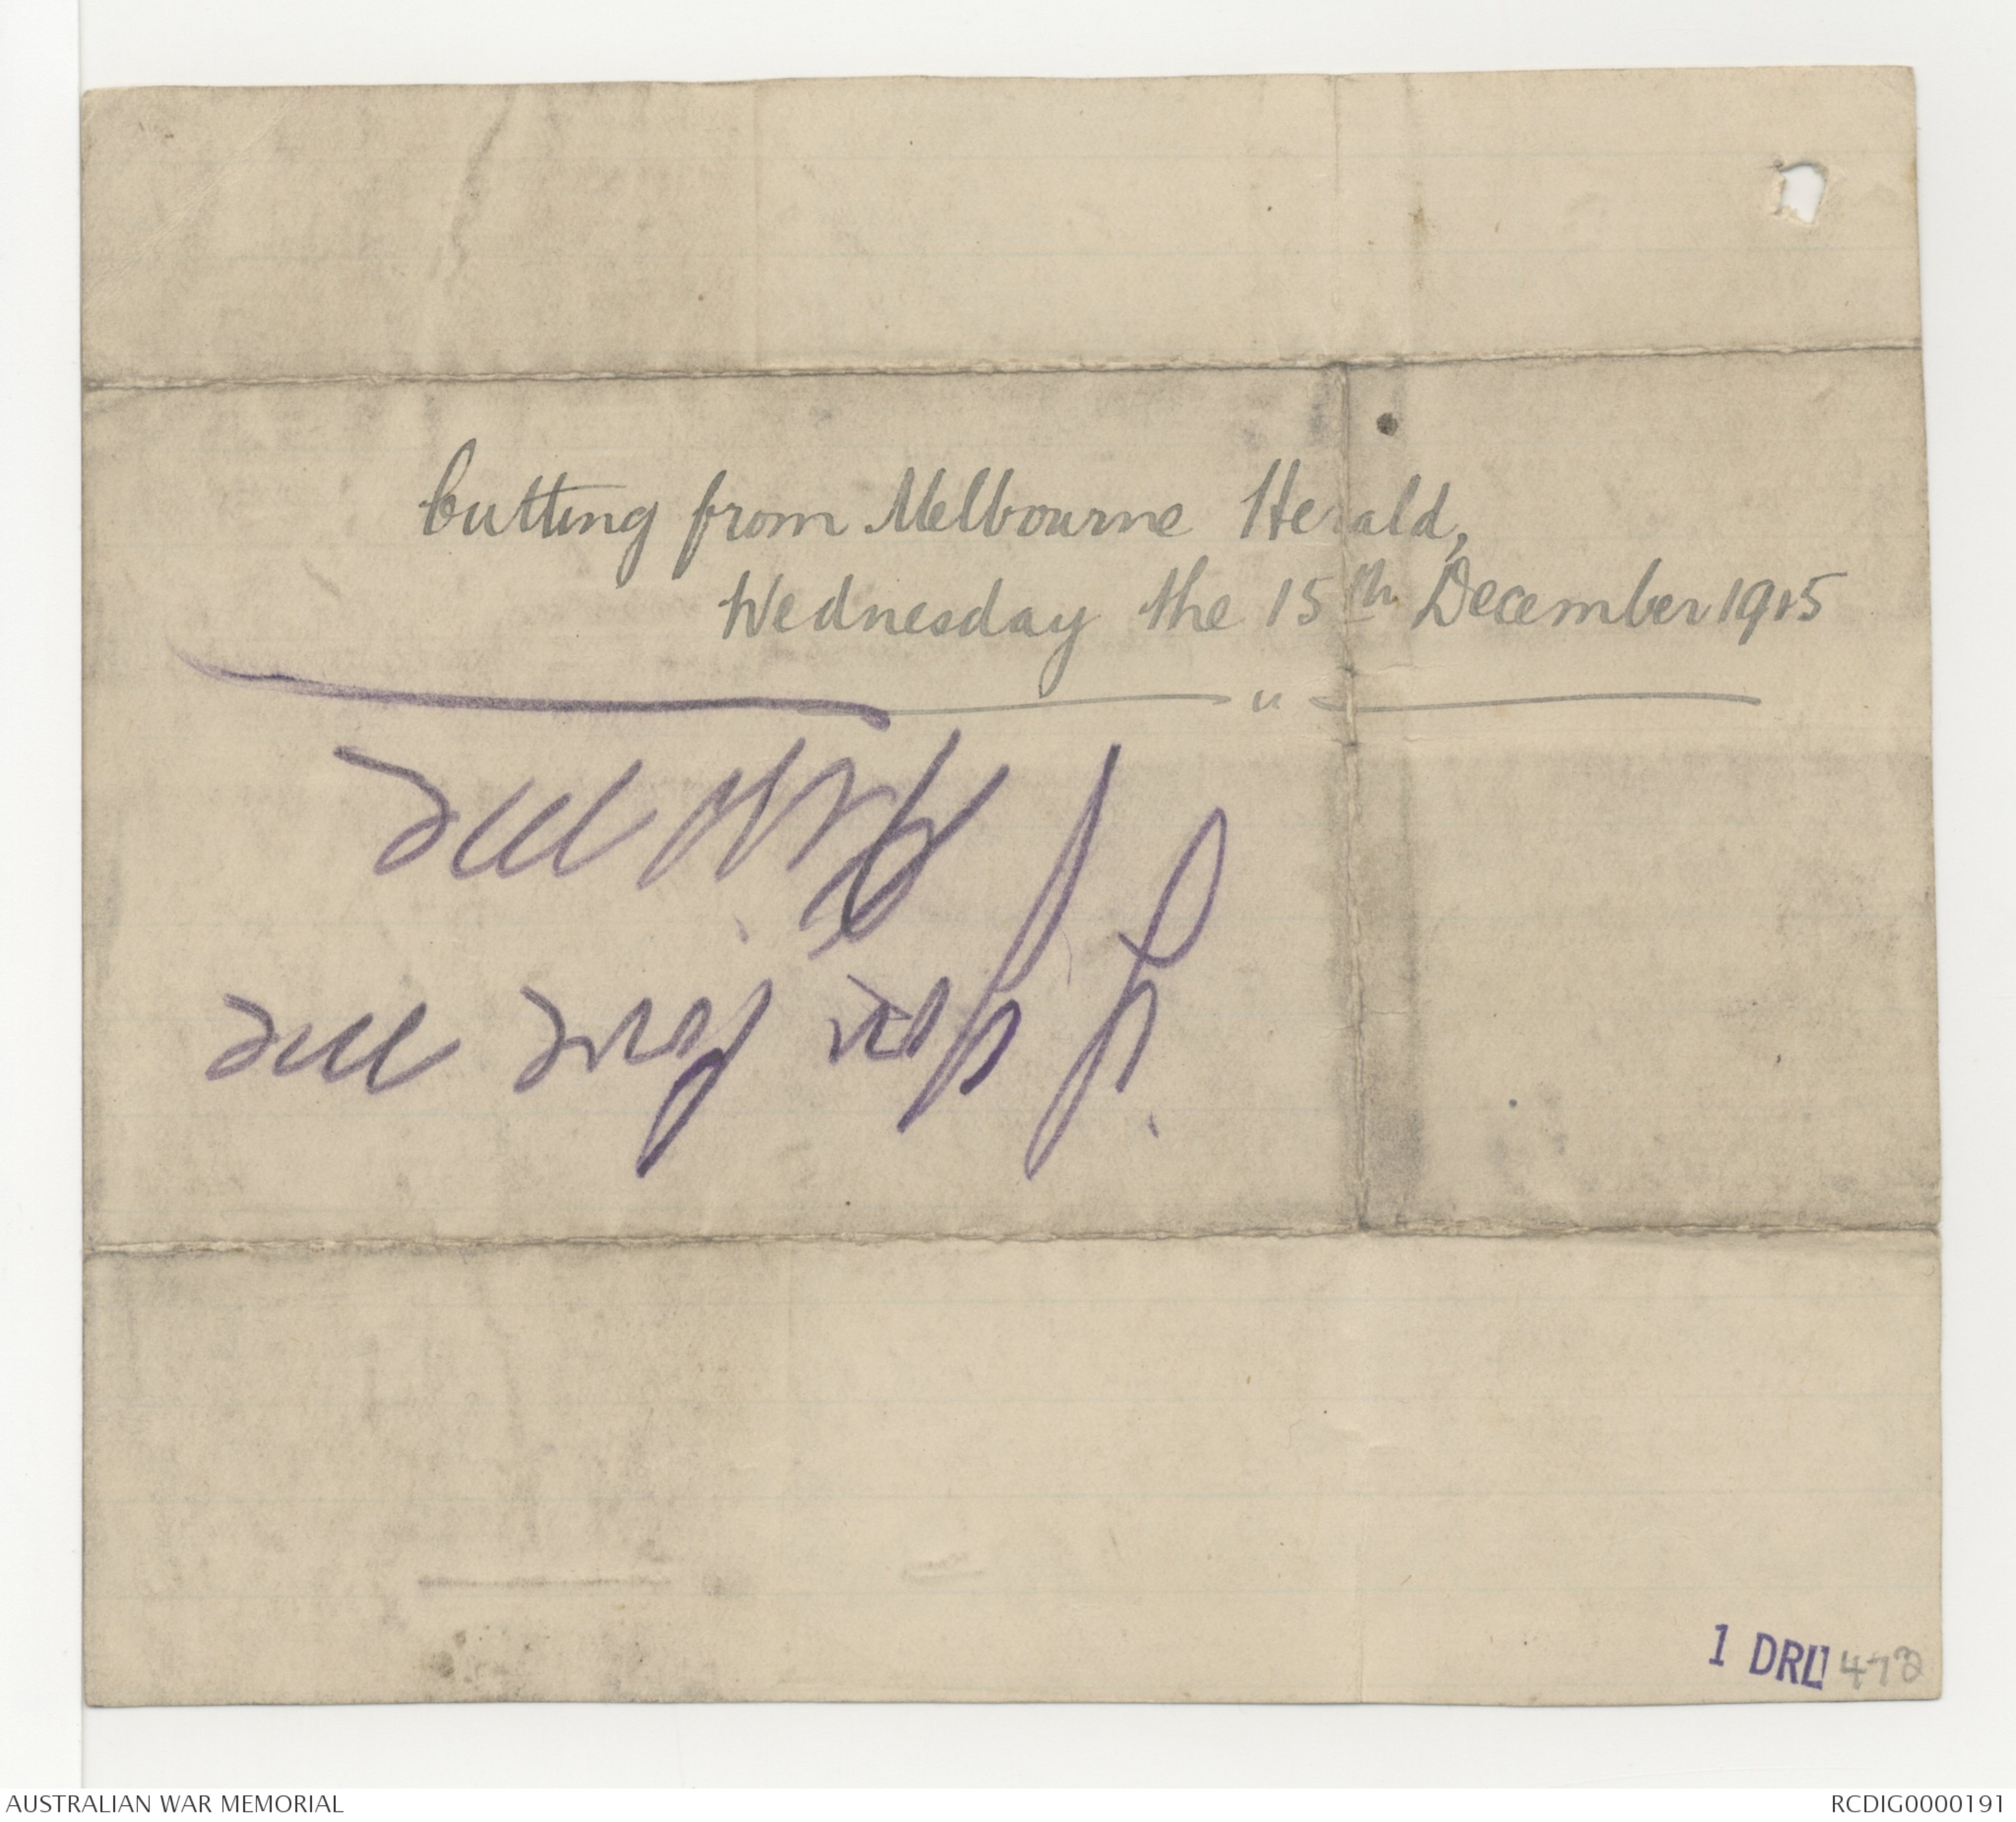 Cutting from Melbourne Herald,
Wednesday the 15th December 1915
"
If you love me
Kiss me
1 DRL 473
AUSTRALIAN WAR MEMORIAL
RCDIG0000191